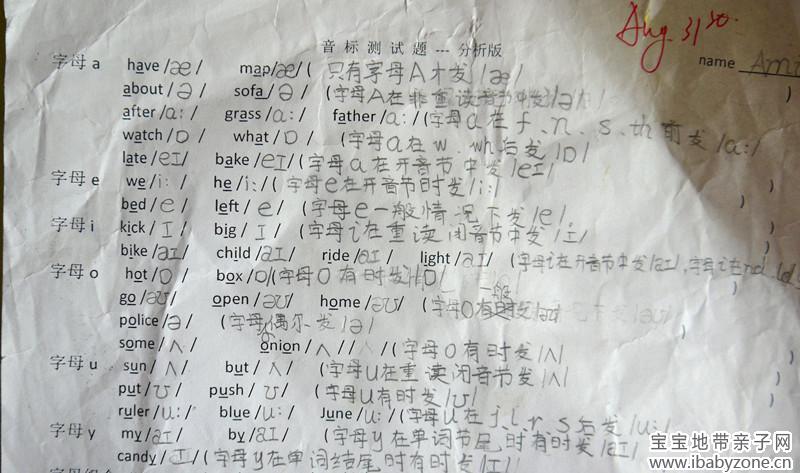 音标测试题 --- 分析版
Aug. 31st.
name Ami
字母 a have /æ/ map/æ/ ( 只有字母A才发/æ/
about /ə/ sofa/ə/ (字母A在非重读音节中发/ə/
after /ɑ:/ grass /ɑ:/ father /ɑ:/ (字母a在f、n、s、th前发/a:/
watch /ɒ/ what/ɒ/ (字母a在w、wh后发/ɒ/ )
late /eɪ/ bake/eɪ/(字母a在开音节中发/eɪ/
字母 e we/i:/ he/i:/( 字母e在开音节时发/i:/ )
bed/e/ left/e/ (字母e一般情况下发/e/. )
字母 i kick/ɪ/ big/ɪ/ (字母i在重读闭音节中发/ɪ/ )
bike/aɪ/ child /aɪ/ ride /aɪ/ light /aɪ/ (字母i在开音节中发/aɪ/,字母i在nd、ld、
字母 o hot/ɒ/ box/ɒ/(字母O有时发/ɒ/ )
一般
go/əʊ/ open/əʊ/ home /əʊ/ (字母O有 )
police/ə/ (字母偶尔发/ə/
some/ʌ/ onion/ʌ/ / /(字母o有时发/ʌ/
字母 u sun/ʌ/ but/ʌ/ (字母u在重读闭音节发/ʌ/ )
put/ʊ/ push/ʊ/ (字母u有时发/ʊ/ )
ruler/u:/ blue/u:/ June/u:/ (字母u在j、l、r、s后发/u:/ )
字母 y my/aɪ/ by/aɪ/ (字母y在单词节尾时有时发/aɪ/
candy/ɪ/(字母y在单词结尾时有时发/ɪ/
宝宝地带亲子网
www.ibabyzone.cn